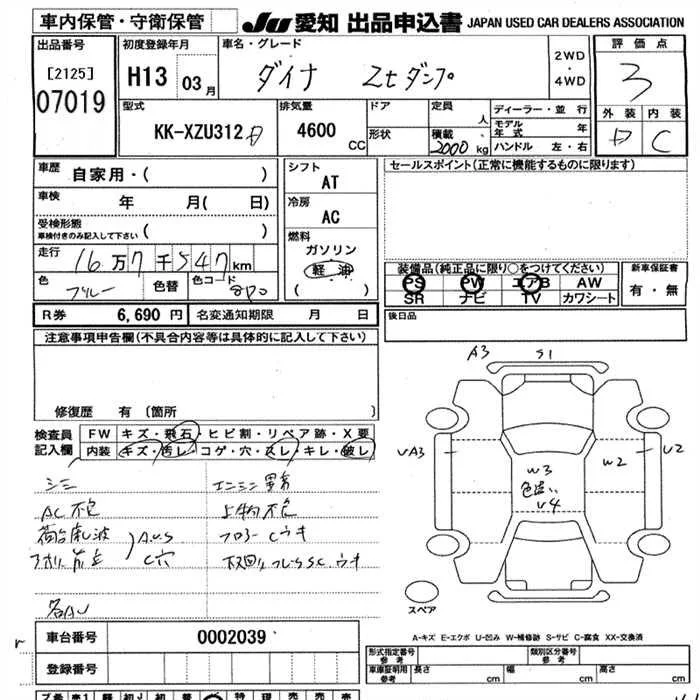 車内保管・守衛保管
JU 愛知 出品申込書 JAPAN USED CAR DEALERS ASSOCIATION
出品番号 初度登録年月 車名・グレード 2WD・4WD 評価点
[2125] 07019 H13 03月 ダイナ Ztダンプ 3
外装 内装
D C
型式 KK-XZU312 排気量 4600 CC ドア 形状 定員 人 積載 2000 kg
ディーラー・並行
モデル年式 年
ハンドル 左・右
車歴 自家用・( )
車検 年 月( 日)
受検形態 車検付きのみ記入して下さい ( )
走行 16万7千547km
色 ブルー 色替 色コード 8P0
シフト AT
冷房 AC
燃料 ガソリン 軽油 ( )
セールスポイント(正常に機能するものに限ります)
装備品(純正品に限り○をつけてください) 新車保証書
PS PW エアB AW 有・無
SR ナビ TV カワシート
R券 6,690円 名変通知期限 月 日
後日品
注意事項申告欄(不具合内容等は具体的に記入して下さい)
修復歴 有 〔箇所 〕
検査員記入欄 FW キズ・飛石・ヒビ割・リペア跡・X要
内装 キズ・汚レ・コゲ・穴・スレ・キレ・破レ
シミ
AC不良
A.U.S
C穴
フロアーCウキ
下廻りフレームS.C.ウキ
各AU
A3 S1
UA3 U2
W2
W3
色違い
U4
スペア
A-キズ E-エクボ U-凹み W-補修跡 S-サビ C-腐食 XX-交換済
車台番号 0002039
登録番号
形式指定番号 参考 類別区分番号 参考
車庫証明用 参考 長さ cm 幅 cm 高さ cm